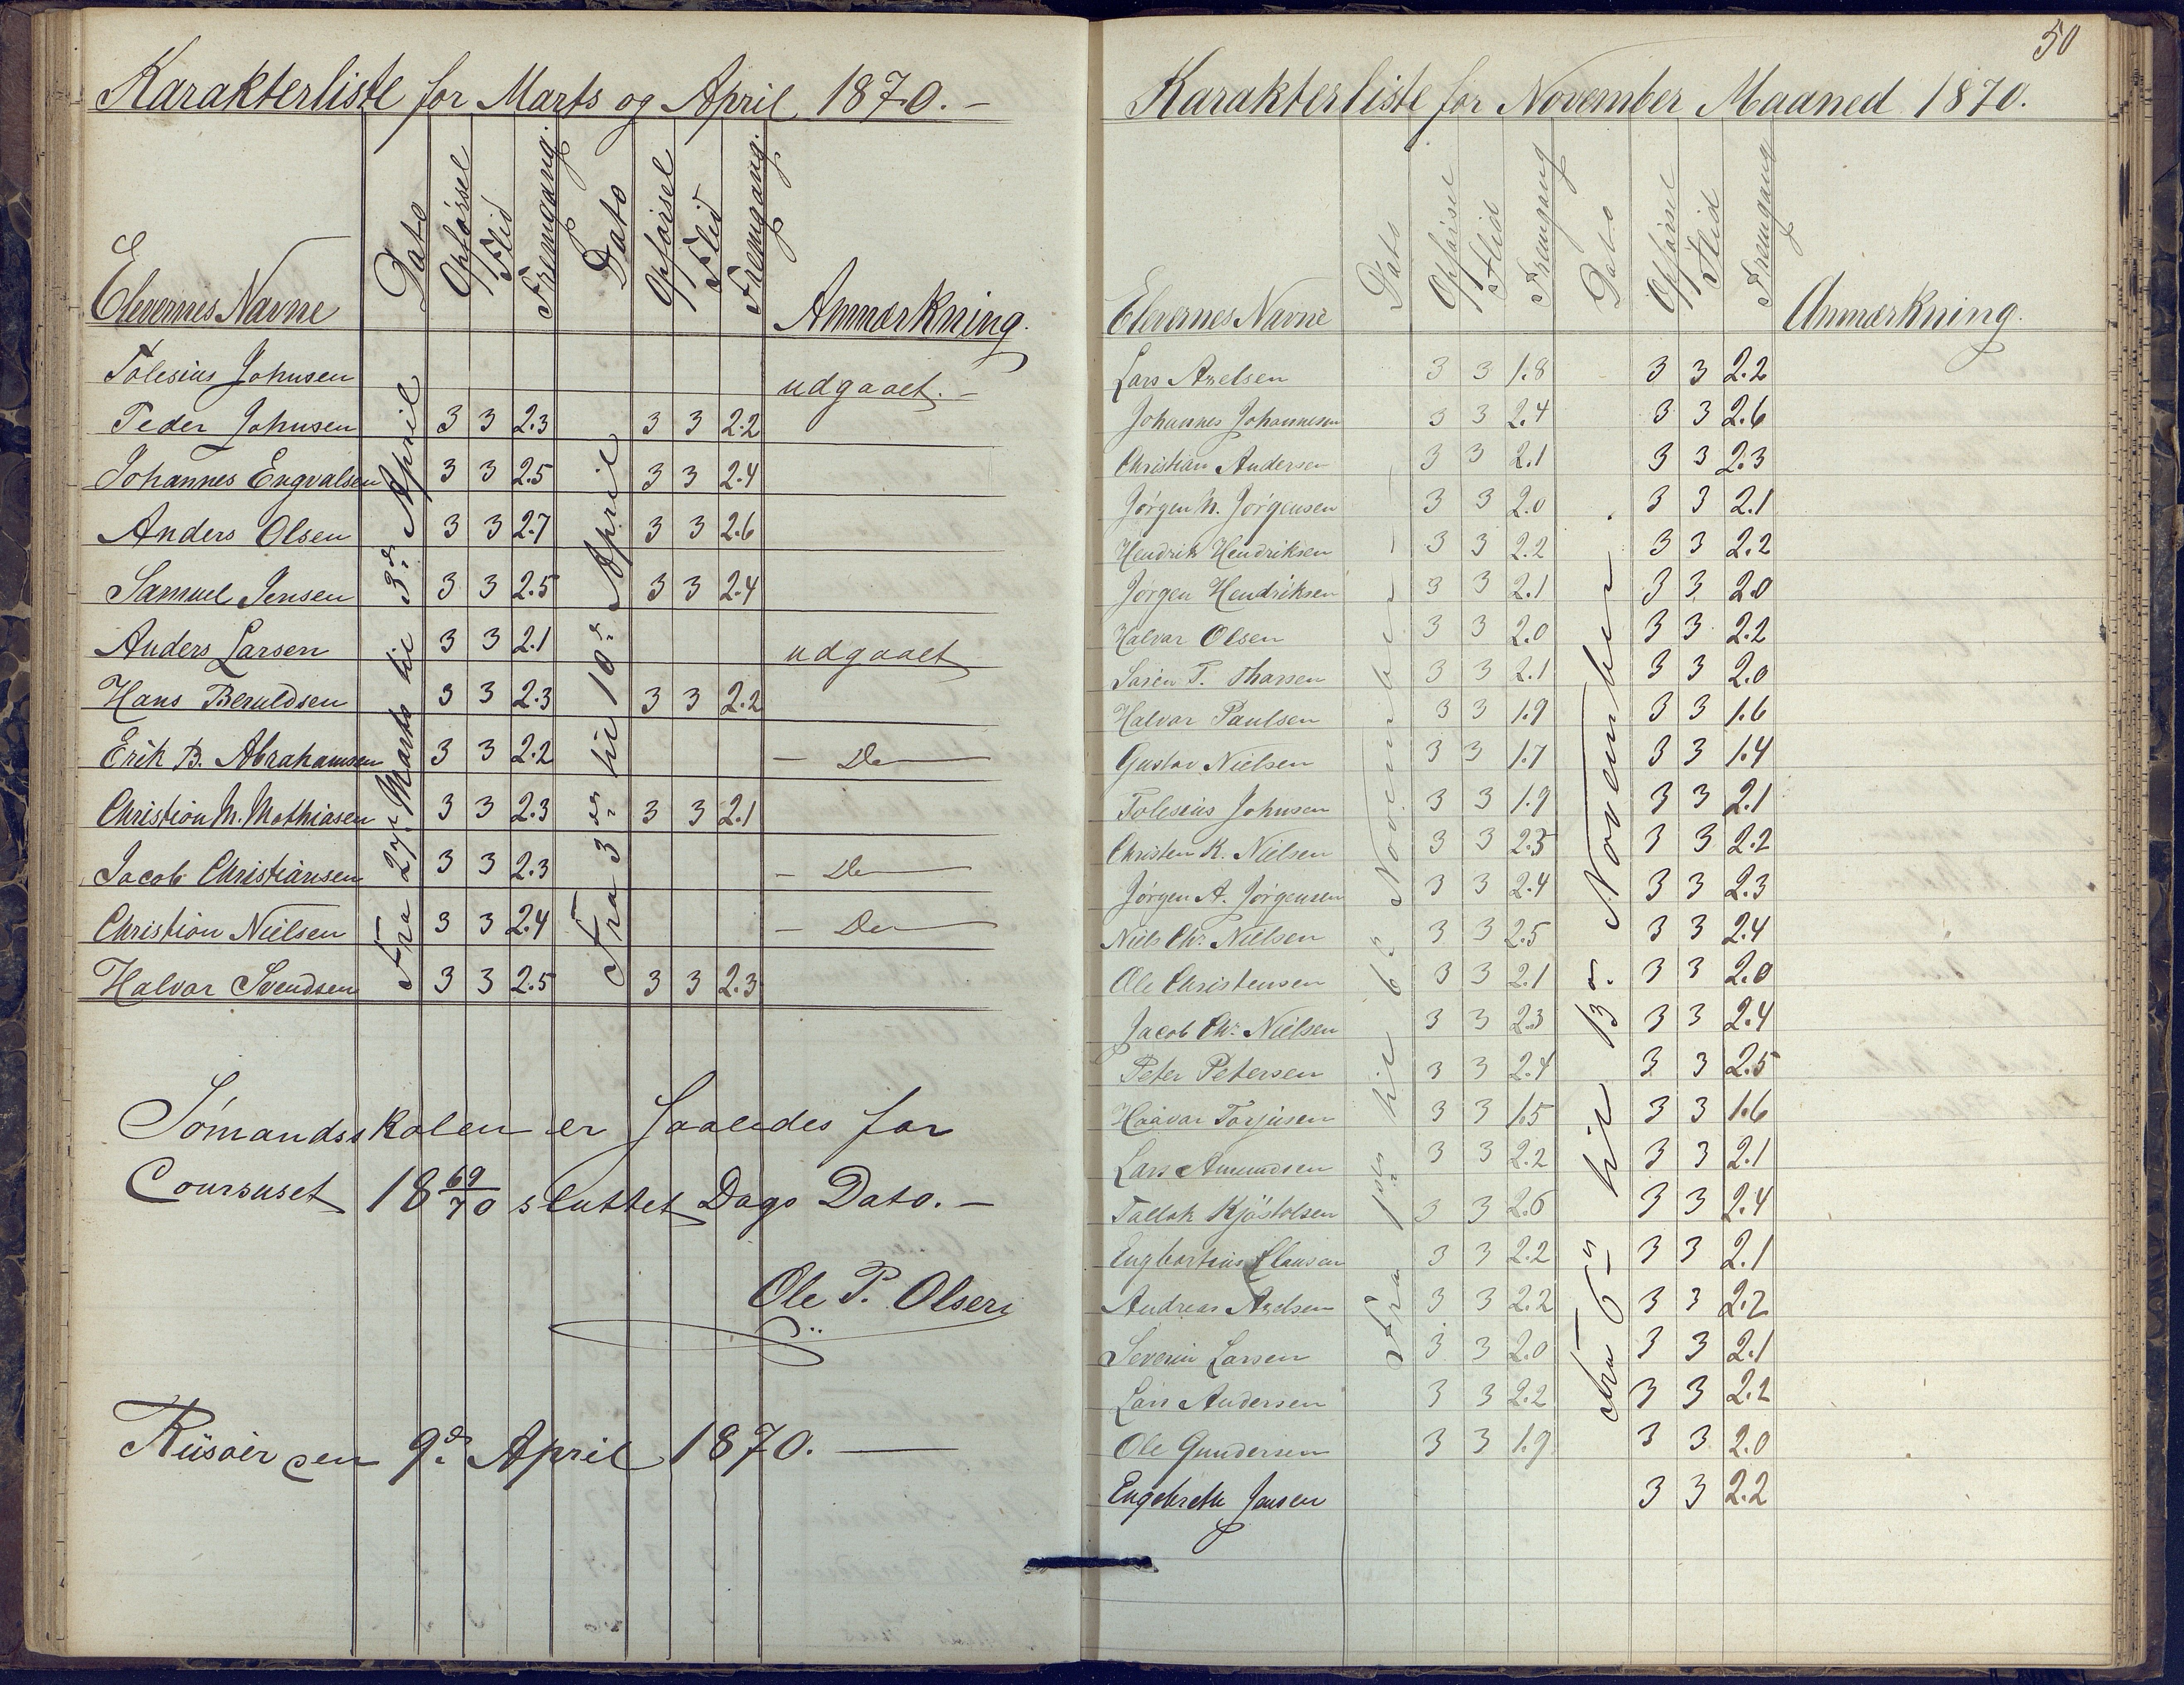 Karakterliste for Marts og April 1870. –
Elevernes Navne Dato Opførsel Flid Fremgang. Dato Opførsel Flid Fremgang. Anmærkning.
Fra 27de Marts til 3de April
Fra 3de til 10de April
Tolesius Johnsen udgaaet. –
Peder Johnsen 3 3 2.3 3 3 2.2
Johannes Engvalsen 3 3 2.5 3 3 2.4
Anders Olsen 3 3 2.7 3 3 2.6
Samuel Jensen 3 3 2.5 3 3 2.4
Anders Larsen 3 3 2.1 udgaaet
Hans Beruldsen 3 3 2.3 3 3 2.2
Erik B. Abrahamsen 3 3 2.2 – Do —
Christian M. Mathiasen 3 3 2.3 3 3 2.1
Jacob Christiansen 3 3 2.3 – Do —
Christian Nielsen 3 3 2.4 – Do —
Halvor Svendsen 3 3 2.5 3 3 2.3
Sømandsskolen er saaledes for
Coursuset 18 69/70 sluttet Dags Dato. –
Ole P. Olsen
Riisøer den 9de April 1870. —
50
Karakterliste for November Maaned 1870.
Elevernes Navne Dato Opførsel Flid Fremgang Dato Opførsel Flid Fremgang Anmærkning.
Fra 1ste til 6te November
Fra 6te til 13de November
Lars Axelsen 3 3 1.8 3 3 2.2
Johannes Johannesen 3 3 2.4 3 3 2.6
Christian Andersen 3 3 2.1 3 3 2.3
Jørgen N. Jørgensen 3 3 2.0 3 3 2.1
Hendrik Hendriksen 3 3 2.2 3 3 2.2
Jørgen Hendriksen 3 3 2.1 3 3 2.0
Halvor Olsen 3 3 2.0 3 3 2.2
Søren T. Tharsen 3 3 2.1 3 3 2.0
Halvor Paulsen 3 3 1.9 3 3 1.6
Gustav Nielsen 3 3 1.7 3 3 1.4
Tolesius Johnsen 3 3 1.9 3 3 2.1
Christen K. Nielsen 3 3 2.3 3 3 2.2
Jørgen A. Jørgensen 3 3 2.4 3 3 2.3
Niels Chr. Nielsen 3 3 2.5 3 3 2.4
Ole Christensen 3 3 2.1 3 3 2.0
Jacob Chr. Nielsen 3 3 2.3 3 3 2.4
Peter Petersen 3 3 2.4 3 3 2.5
Haavor Torjusen 3 3 1.5 3 3 1.6
Lars Amundsen 3 3 2.2 3 3 2.1
Tallak Kjøstolsen 3 3 2.6 3 3 2.4
Engbertius Clausen 3 3 2.2 3 3 2.1
Andreas Axelsen 3 3 2.2 3 3 2.2
Severin Larsen 3 3 2.0 3 3 2.1
Lars Andersen 3 3 2.2 3 3 2.2
Ole Gundersen 3 3 1.9 3 3 2.0
Engebreth Jensen 3 3 2.2